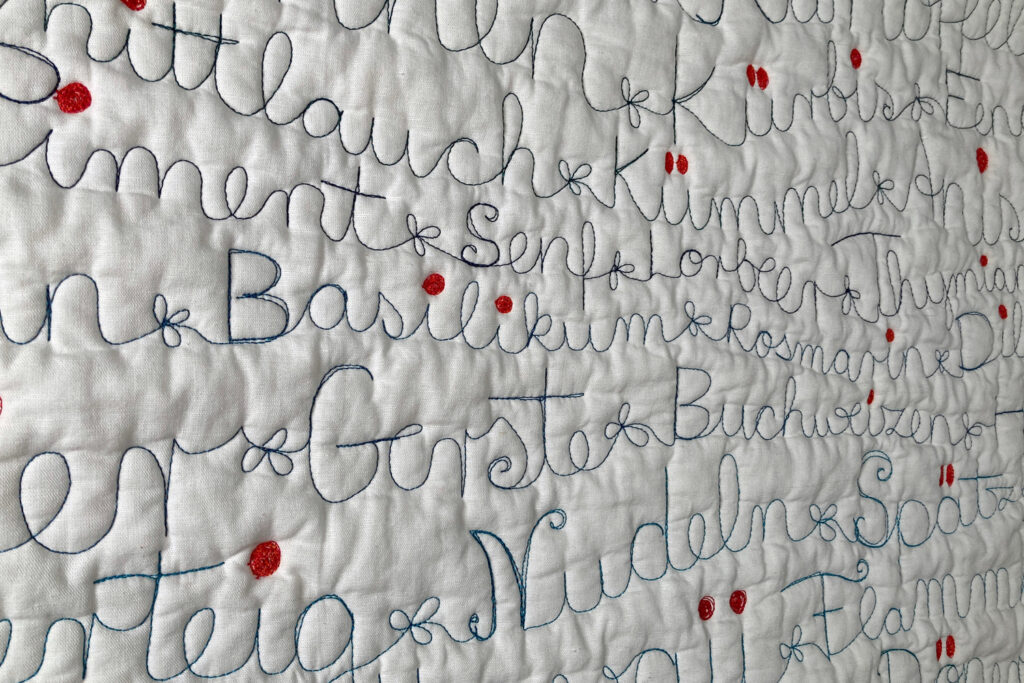 Kürbis En
nittlauch Kümmel Anis
iment Senf Lorber Thymian
n Basilikum Rosmarin Dill
er Gerste Buchweizen
rteig Nudeln Spätz
Flamm